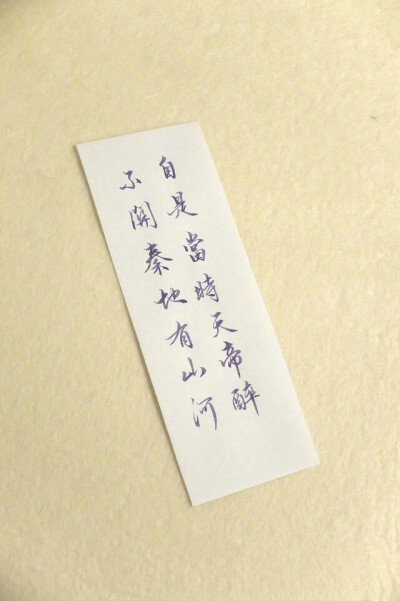 自是當時天帝醉
不關秦地有山河